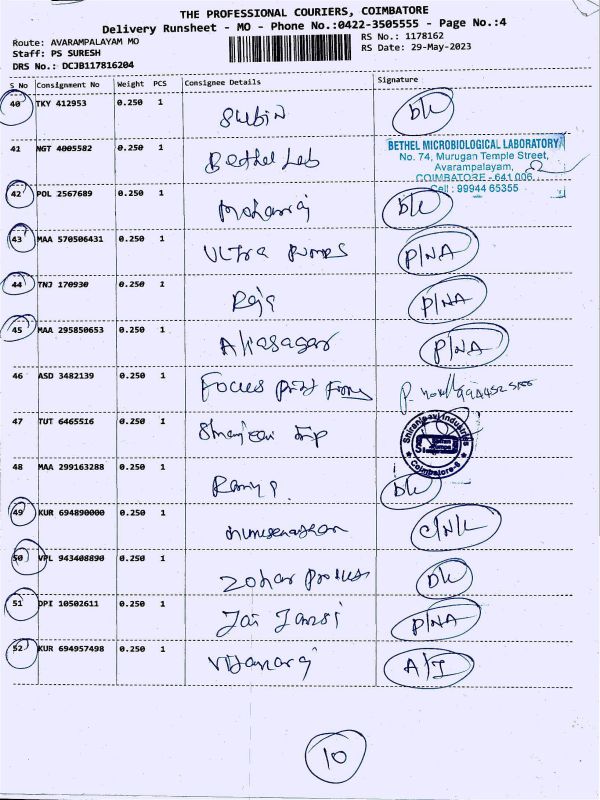 THE PROFESSIONAL COURIERS, COIMBATORE
Delivery Runsheet - MO - Phone No.:0422-3505555 - Page No.:4
Route: AVARAMPALAYAM MO
Staff: PS SURESH
DRS No.: DCJB117816204
RS No.: 1178162
RS Date: 29-May-2023
S No Consignment No Weight PCS Consignee Details Signature
40 TKY 412953 0.250 1 Subin DK
41 NGT 4005582 0.250 1 Bethel Lab
BETHEL MICROBIOLOGICAL LABORATORY
No. 74, Murugan Temple Street,
Avarampalayam,
COIMBATORE - 641 006.
Cell : 99944 65355
42 POL 2567689 0.250 1 Mohanraj DK
43 MAA 570506431 0.250 1 Ultra Pumps P/NA
44 TNJ 170930 0.250 1 Raja P/NA
45 MAA 295850653 0.250 1 P/NA
46 ASD 3482139 0.250 1 Focus Print
47 TUT 6465516 0.250 1
Sriranjani Industries
Coimbatore-6
48 MAA 299163288 0.250 1 Ramya DK
49 KUR 694890000 0.250 1 C/N/L
50 VPL 943408890 0.250 1 Zohar DK
51 DPI 10502611 0.250 1 Jai P/NA
52 KUR 694957498 0.250 1 A/I
10